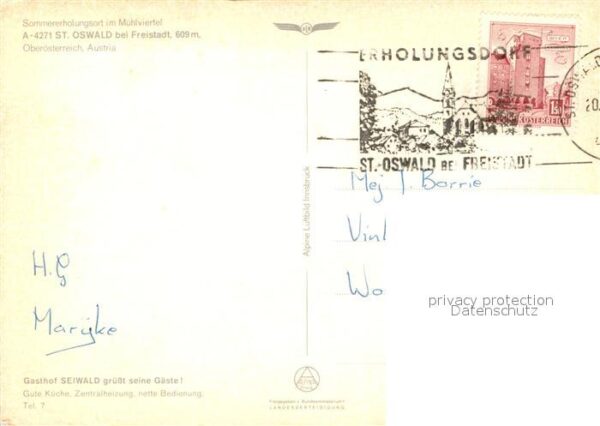 Sommererholungsort im Mühlviertel
A-4271 ST. OSWALD bei Freistadt, 609 m,
Oberösterreich, Austria
ERHOLUNGSDORF
ST. OSWALD BEI FREISTADT
REPUBLIK ÖSTERREICH
ST. OSWALD
20.
Alpine Luftbild Innsbruck
Mej J. Borrie
Vinl
Wo
H.G
Marijke
privacy protection
Datenschutz
Gasthof SEIWALD grüßt seine Gäste!
Gute Küche, Zentralheizung, nette Bedienung,
Tel. 7
Freigegeben v. Bundesministerium f.
LANDESVERTEIDIGUNG